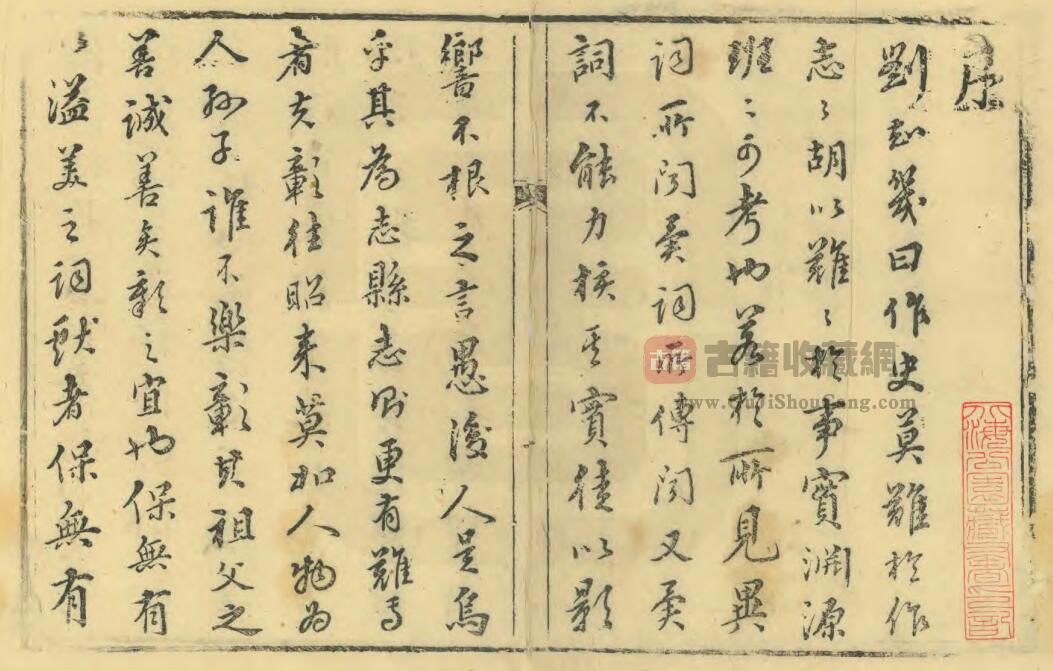 序
劉知幾曰作史莫難於作
志々胡以難々於事實淵源
班々可考也若於所見異
詞所聞異詞所傳聞又異
詞不能力核其實徒以影
響不根之言愚後人是烏
乎其為志縣志則更有難焉
者夫彰往昭来莫如人物為
人孫子誰不樂彰其祖父之
善誠善矣彰之宜也保無有
溢美之詞獻者保無有
古籍
古籍收藏網
www.GuJiShouCang.com